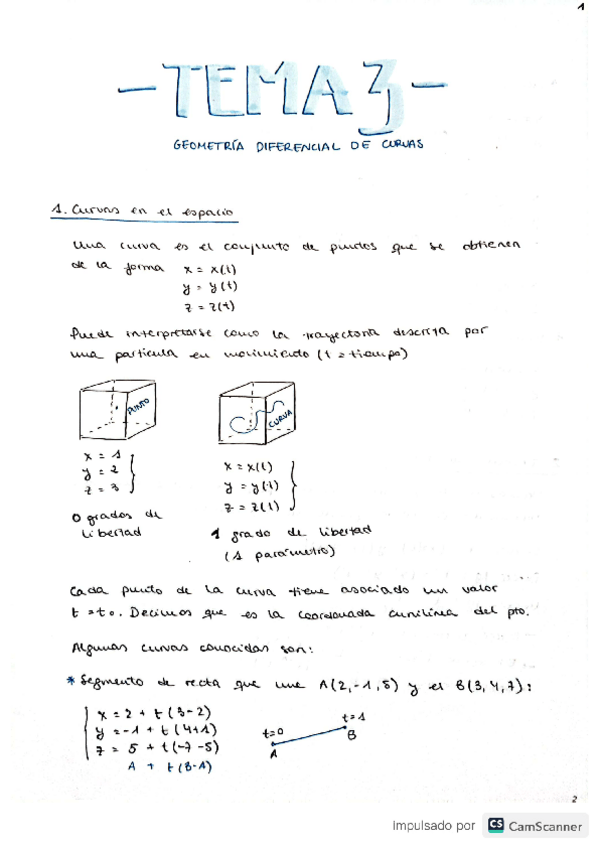 1
- TEMA 3 -
GEOMETRÍA DIFERENCIAL DE CURVAS
1. Curvas en el espacio
Una curva es el conjunto de puntos que se obtienen
de la forma x = x(t)
y = y(t)
z = z(t)
Puede interpretarse como la trayectoria descrita por
una partícula en movimiento (t = tiempo)
PUNTO
CURVA
x = 1
y = 2
z = 3
x = x(t)
y = y(t)
z = z(t)
0 grados de
libertad
1 grado de libertad
(1 parámetro)
Cada punto de la curva tiene asociado un valor
t = t0. Decimos que es la coordenada curvilínea del pto.
Algunas curvas conocidas son:
* Segmento de recta que une A(2,-1,5) y el B(3,4,7):
x = 2 + t(3-2)
y = -1 + t(4+1)
z = 5 + t(-7-5)
A + t(B-A)
t=0
A
t=1
B
2
Impulsado por CS CamScanner